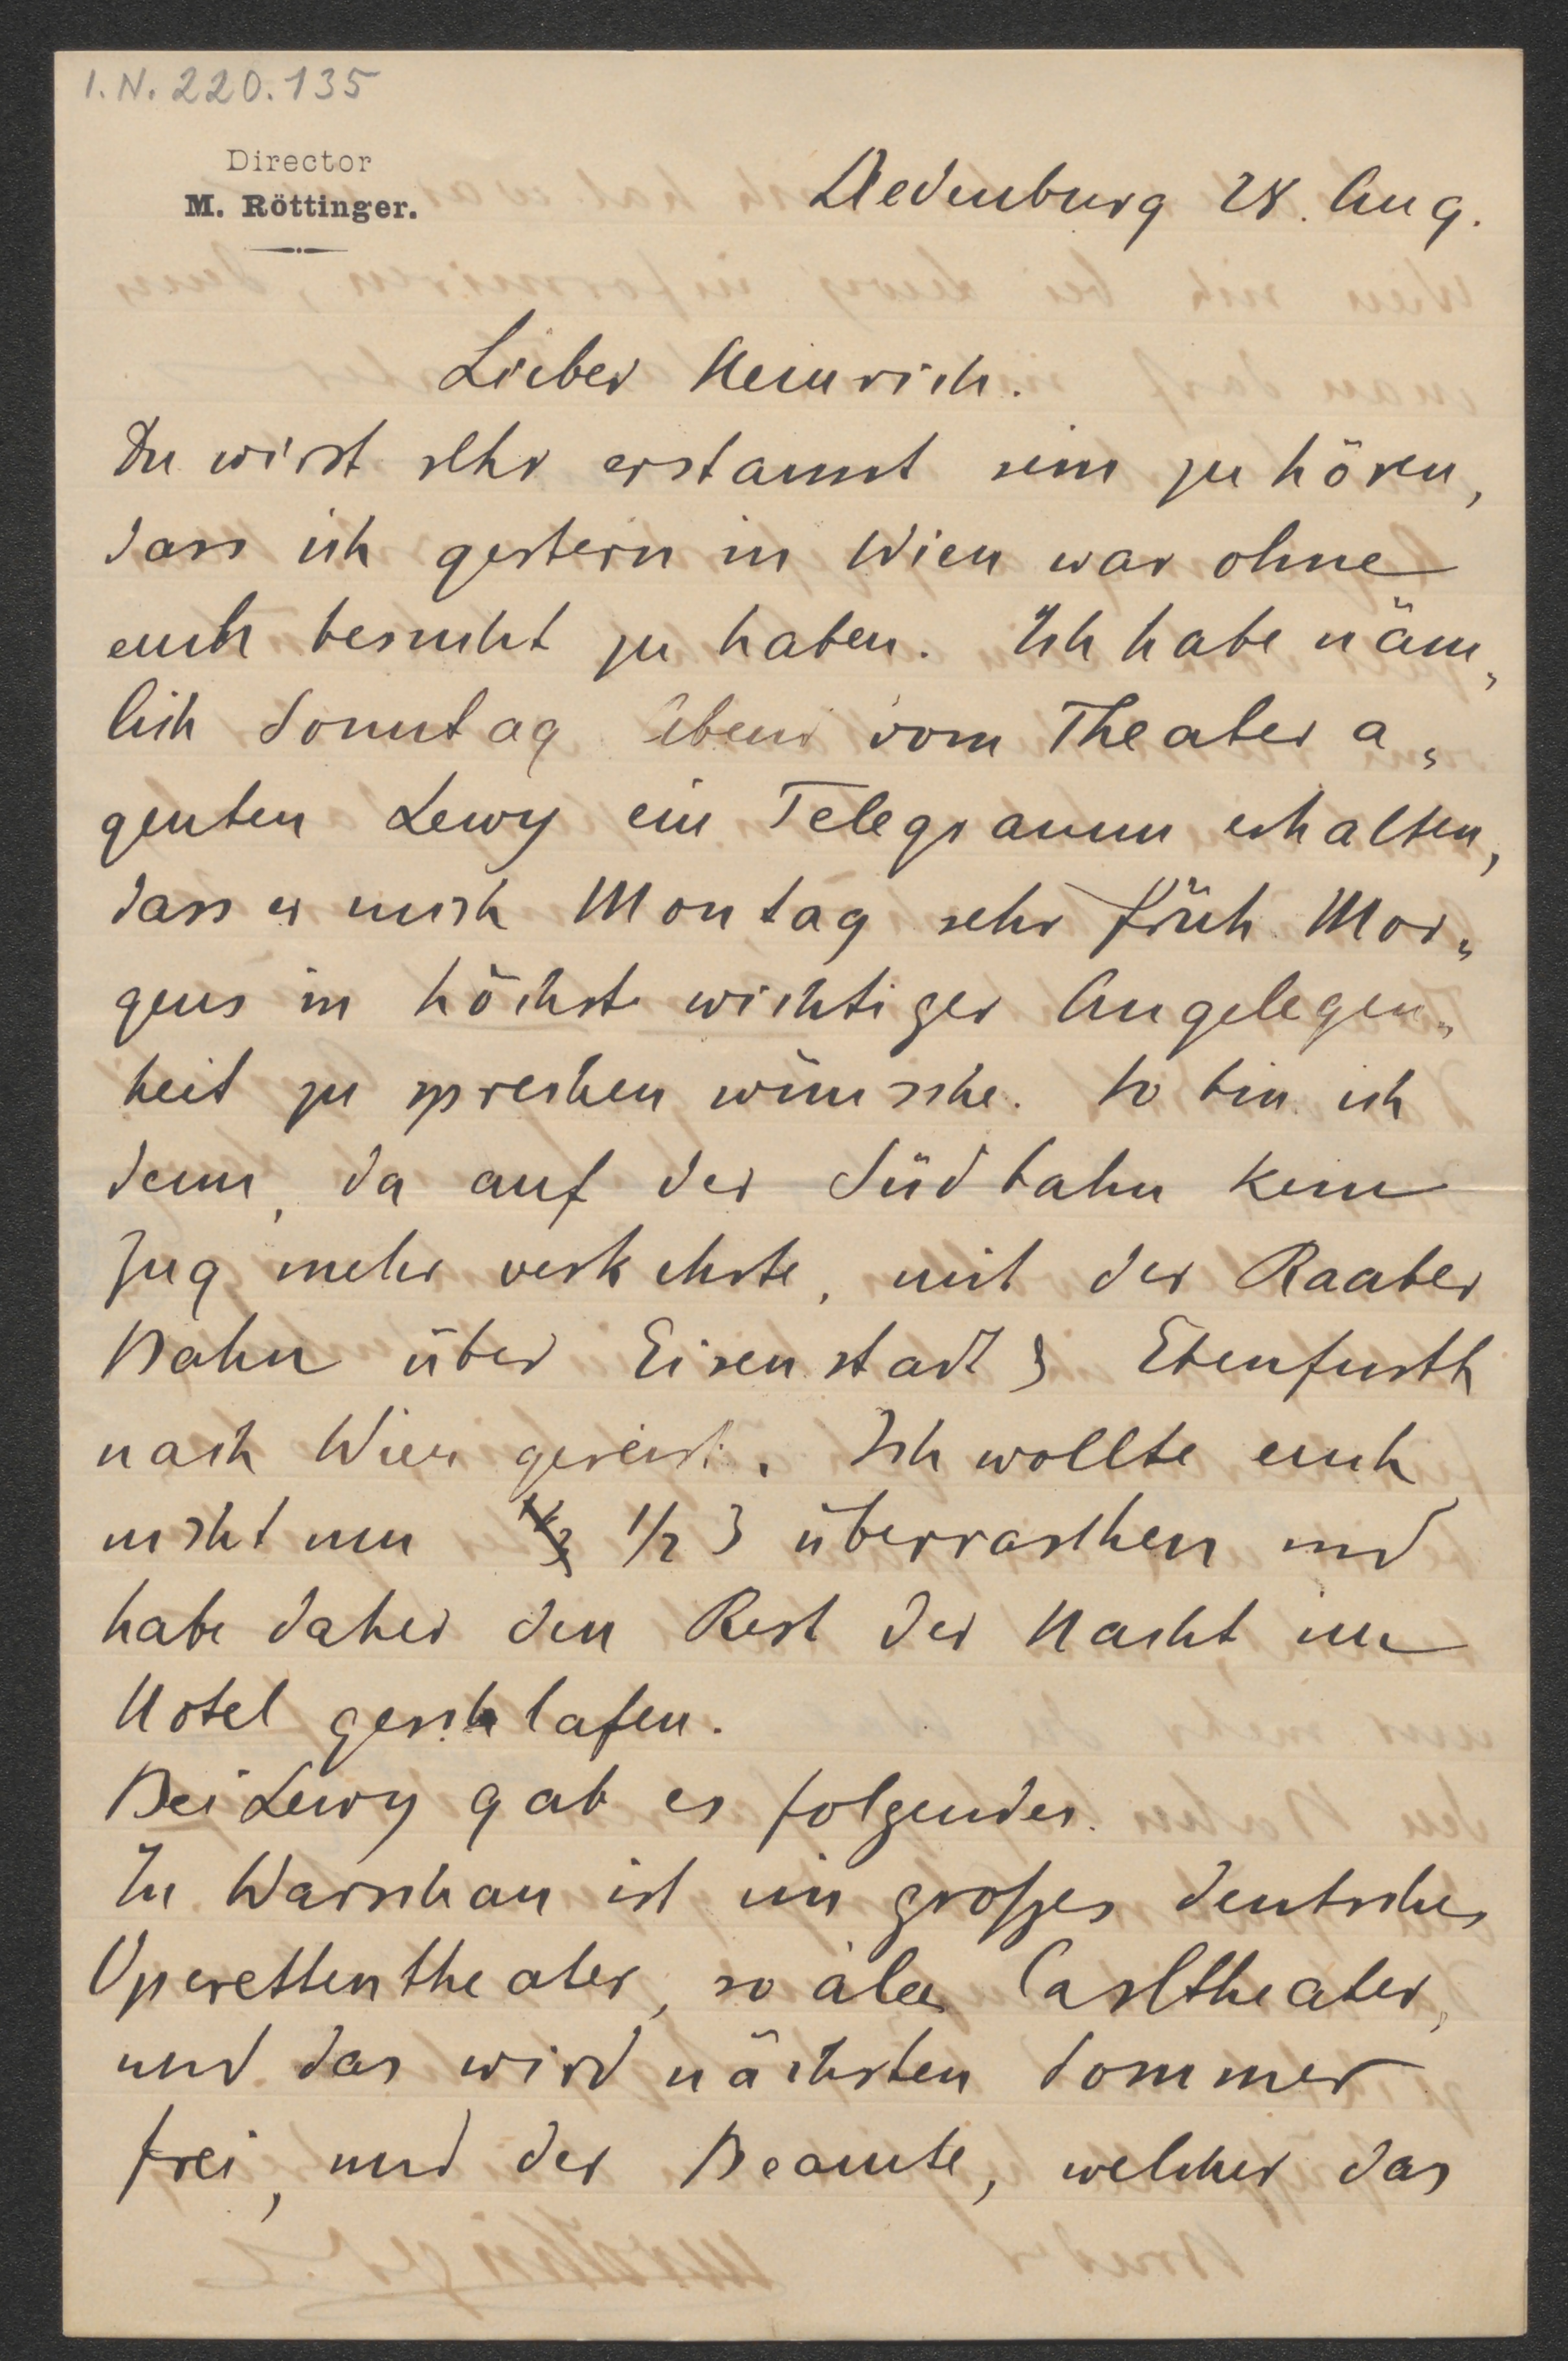 I.N. 220.135
Director
M. Röttinger.
Oedenburg 28. Aug.
Lieber Heinrich.
Du wirst sehr erstaunt sein zu hören,
dass ich gestern in Wien war ohne
euch besucht zu haben. Ich habe näm„
lich Sonntag Abend vom Theatera„
genten Lewy ein Telegramm erhalten,
dass er mich Montag sehr früh Mor„
gens in höchst wichtiger Angelegen„
heit zu sprechen wünsche. So bin ich
denn, da auf der Südbahn kein
Zug mehr verkehrte, mit der Raaber
Bahn über Eisenstadt & Ebenfurth
nach Wien gereist. Ich wollte euch
nicht um 1/2 3 überraschen und
habe daher den Rest der Nacht im
Hotel geschlafen.
Bei Lewy gab es folgendes.
In Warschau ist ein großes deutsches
Operettentheater, so à la Carltheater,
und das wird nächsten Sommer
frei, und der Beamte, welcher das